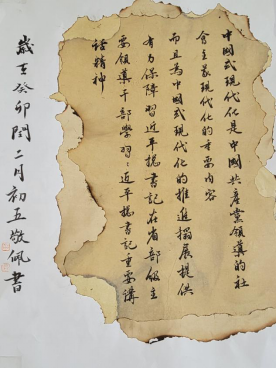 中國式現代化是中國共產黨領導的社
會主義現代化的重要內容
而且為中國式現代化的推進擴展提供
有力保障習近平總書記在省部級主
要領導干部學習習近平總書記重要講
話精神
歲在癸卯閏二月初五敬佩書